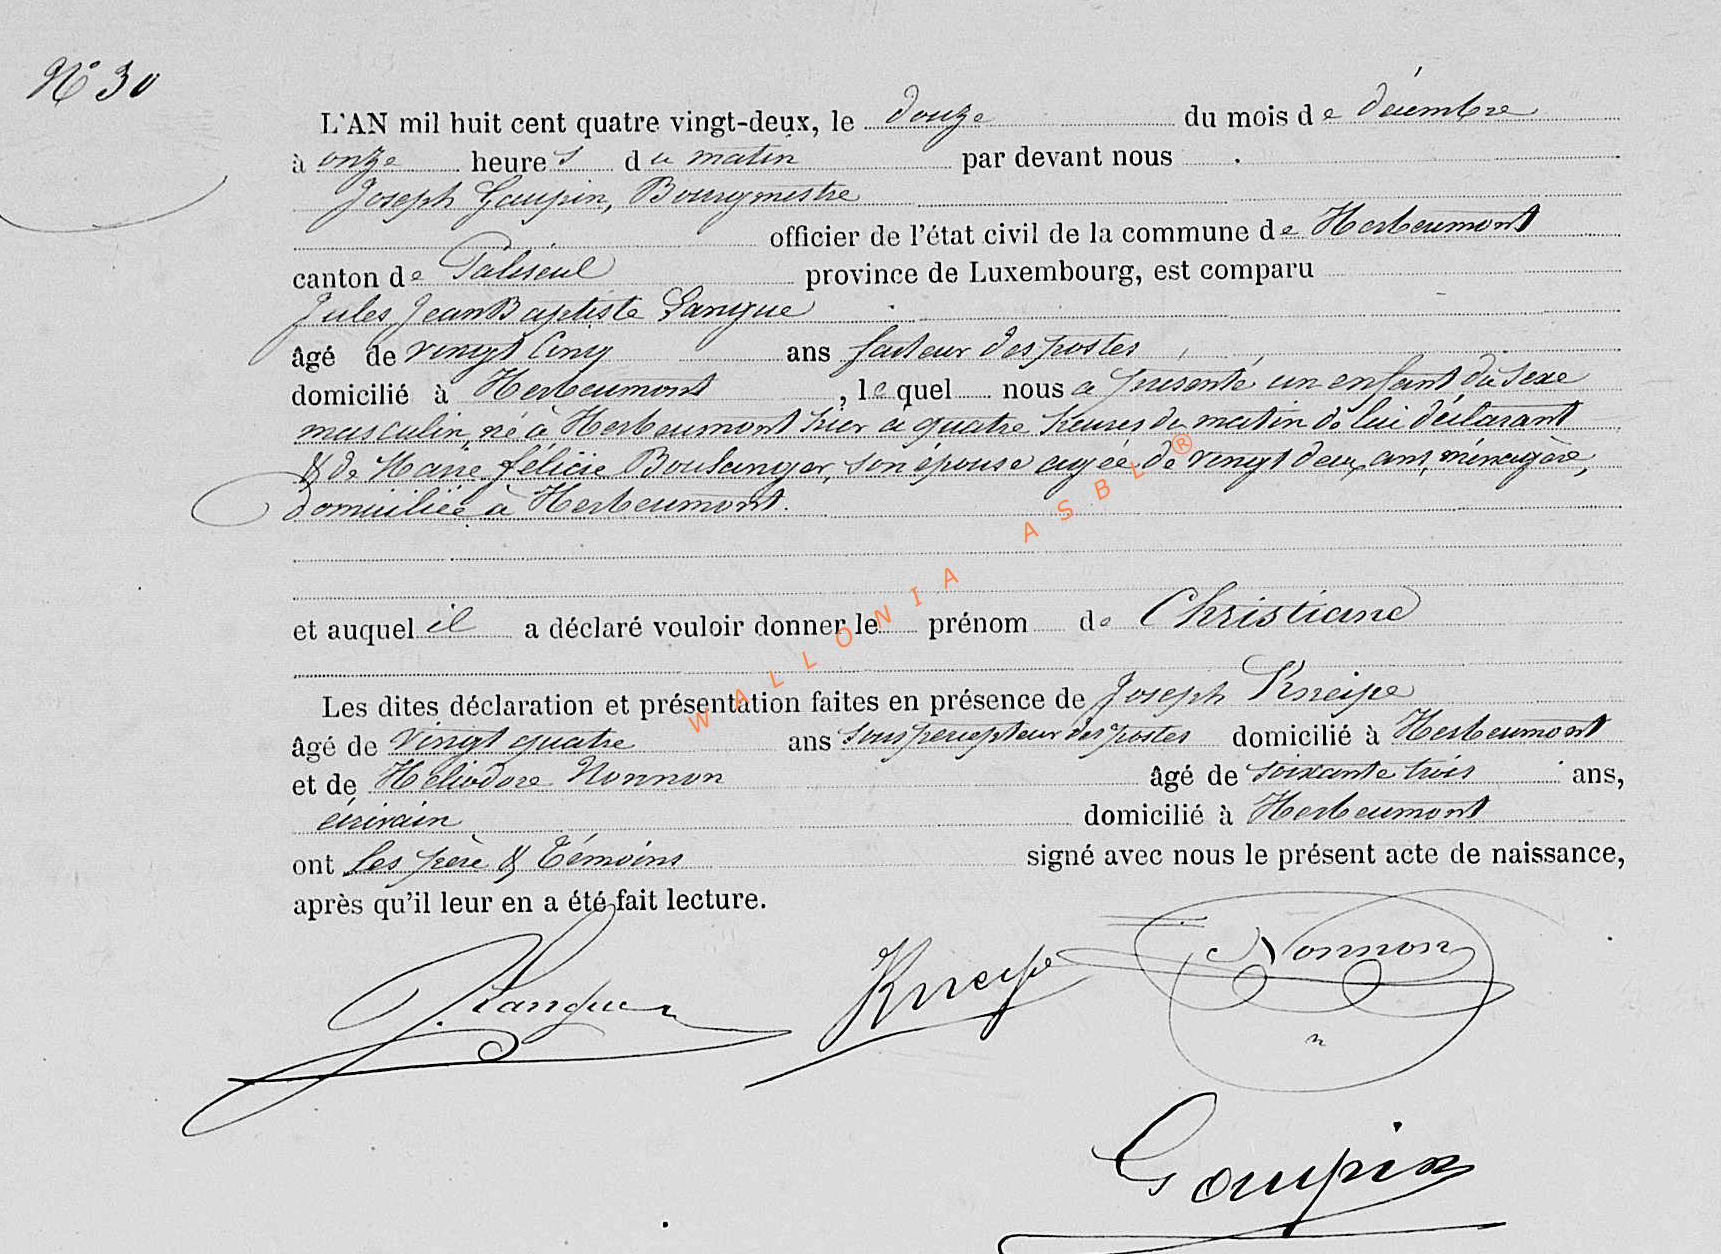 N° 30
L'AN mil huit cent quatre vingt-deux, le douze du mois de décembre
à onze heures du matin par devant nous
Joseph Goupin, Bourgmestre
officier de l'état civil de la commune de Herbeumont
canton de Paliseul province de Luxembourg, est comparu
Jules Jean Baptiste Langue
âgé de vingt Cinq ans facteur des postes
domicilié à Herbeumont, lequel nous a présenté un enfant du sexe
masculin, né à Herbeumont hier à quatre heures du matin de lui déclarant
& de Marie félicie Boulanger, son épouse agée de vingt deux ans, ménagère,
domiciliée à Herbeumont.
et auquel il a déclaré vouloir donner le prénom de Christiane
Les dites déclaration et présentation faites en présence de Joseph Kneipe
âgé de vingt quatre ans sous percepteur des postes domicilié à Herbeumont
et de Héliodore Nonnon âgé de soixante trois ans,
écrivain domicilié à Herbeumont
ont les père & témoins signé avec nous le présent acte de naissance,
après qu'il leur en a été fait lecture.
J. Langue Kneipe Nonnon
Goupin
WALLONIA ASBL ®